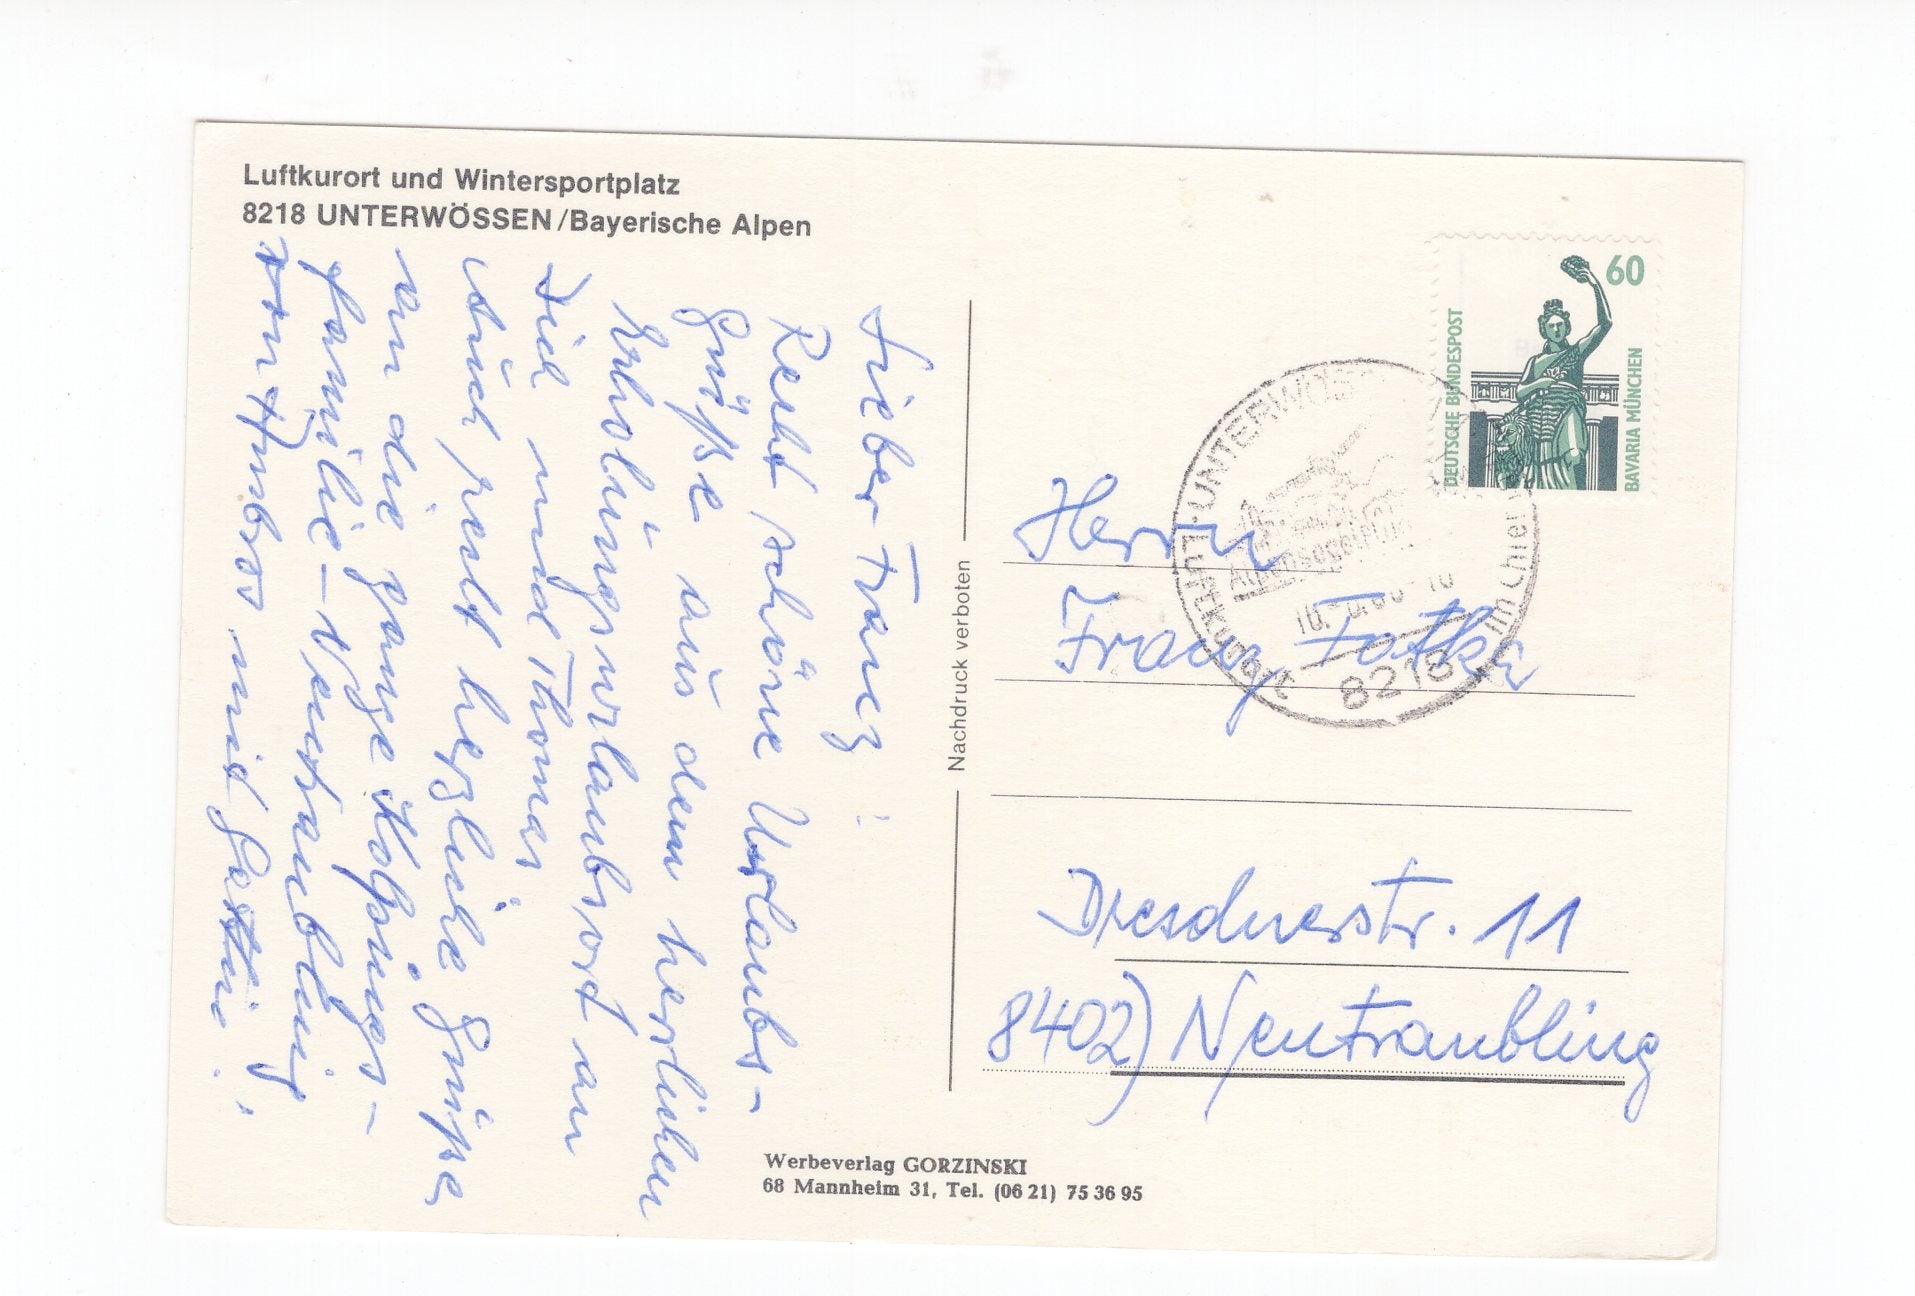 Luftkurort und Wintersportplatz
8218 UNTERWÖSSEN/Bayerische Alpen
Lieber Franz!
Recht schöne Urlaubs-
Grüße aus dem herrlichen
Erholungsurlaubsort an
Dich und Thomas.
Auch recht herzliche Grüße
an die ganze Kolpings-
familie – Neutraubling
von und Gattin.
Nachdruck verboten
60
DEUTSCHE BUNDESPOST
BAVARIA MÜNCHEN
UNTERWÖS
Luftkurort
im Chiem
8218
Herrn
Franz
Dresdnerstr. 11
8402) Neutraubling
Werbeverlag GORZINSKI
68 Mannheim 31, Tel. (06 21) 75 36 95